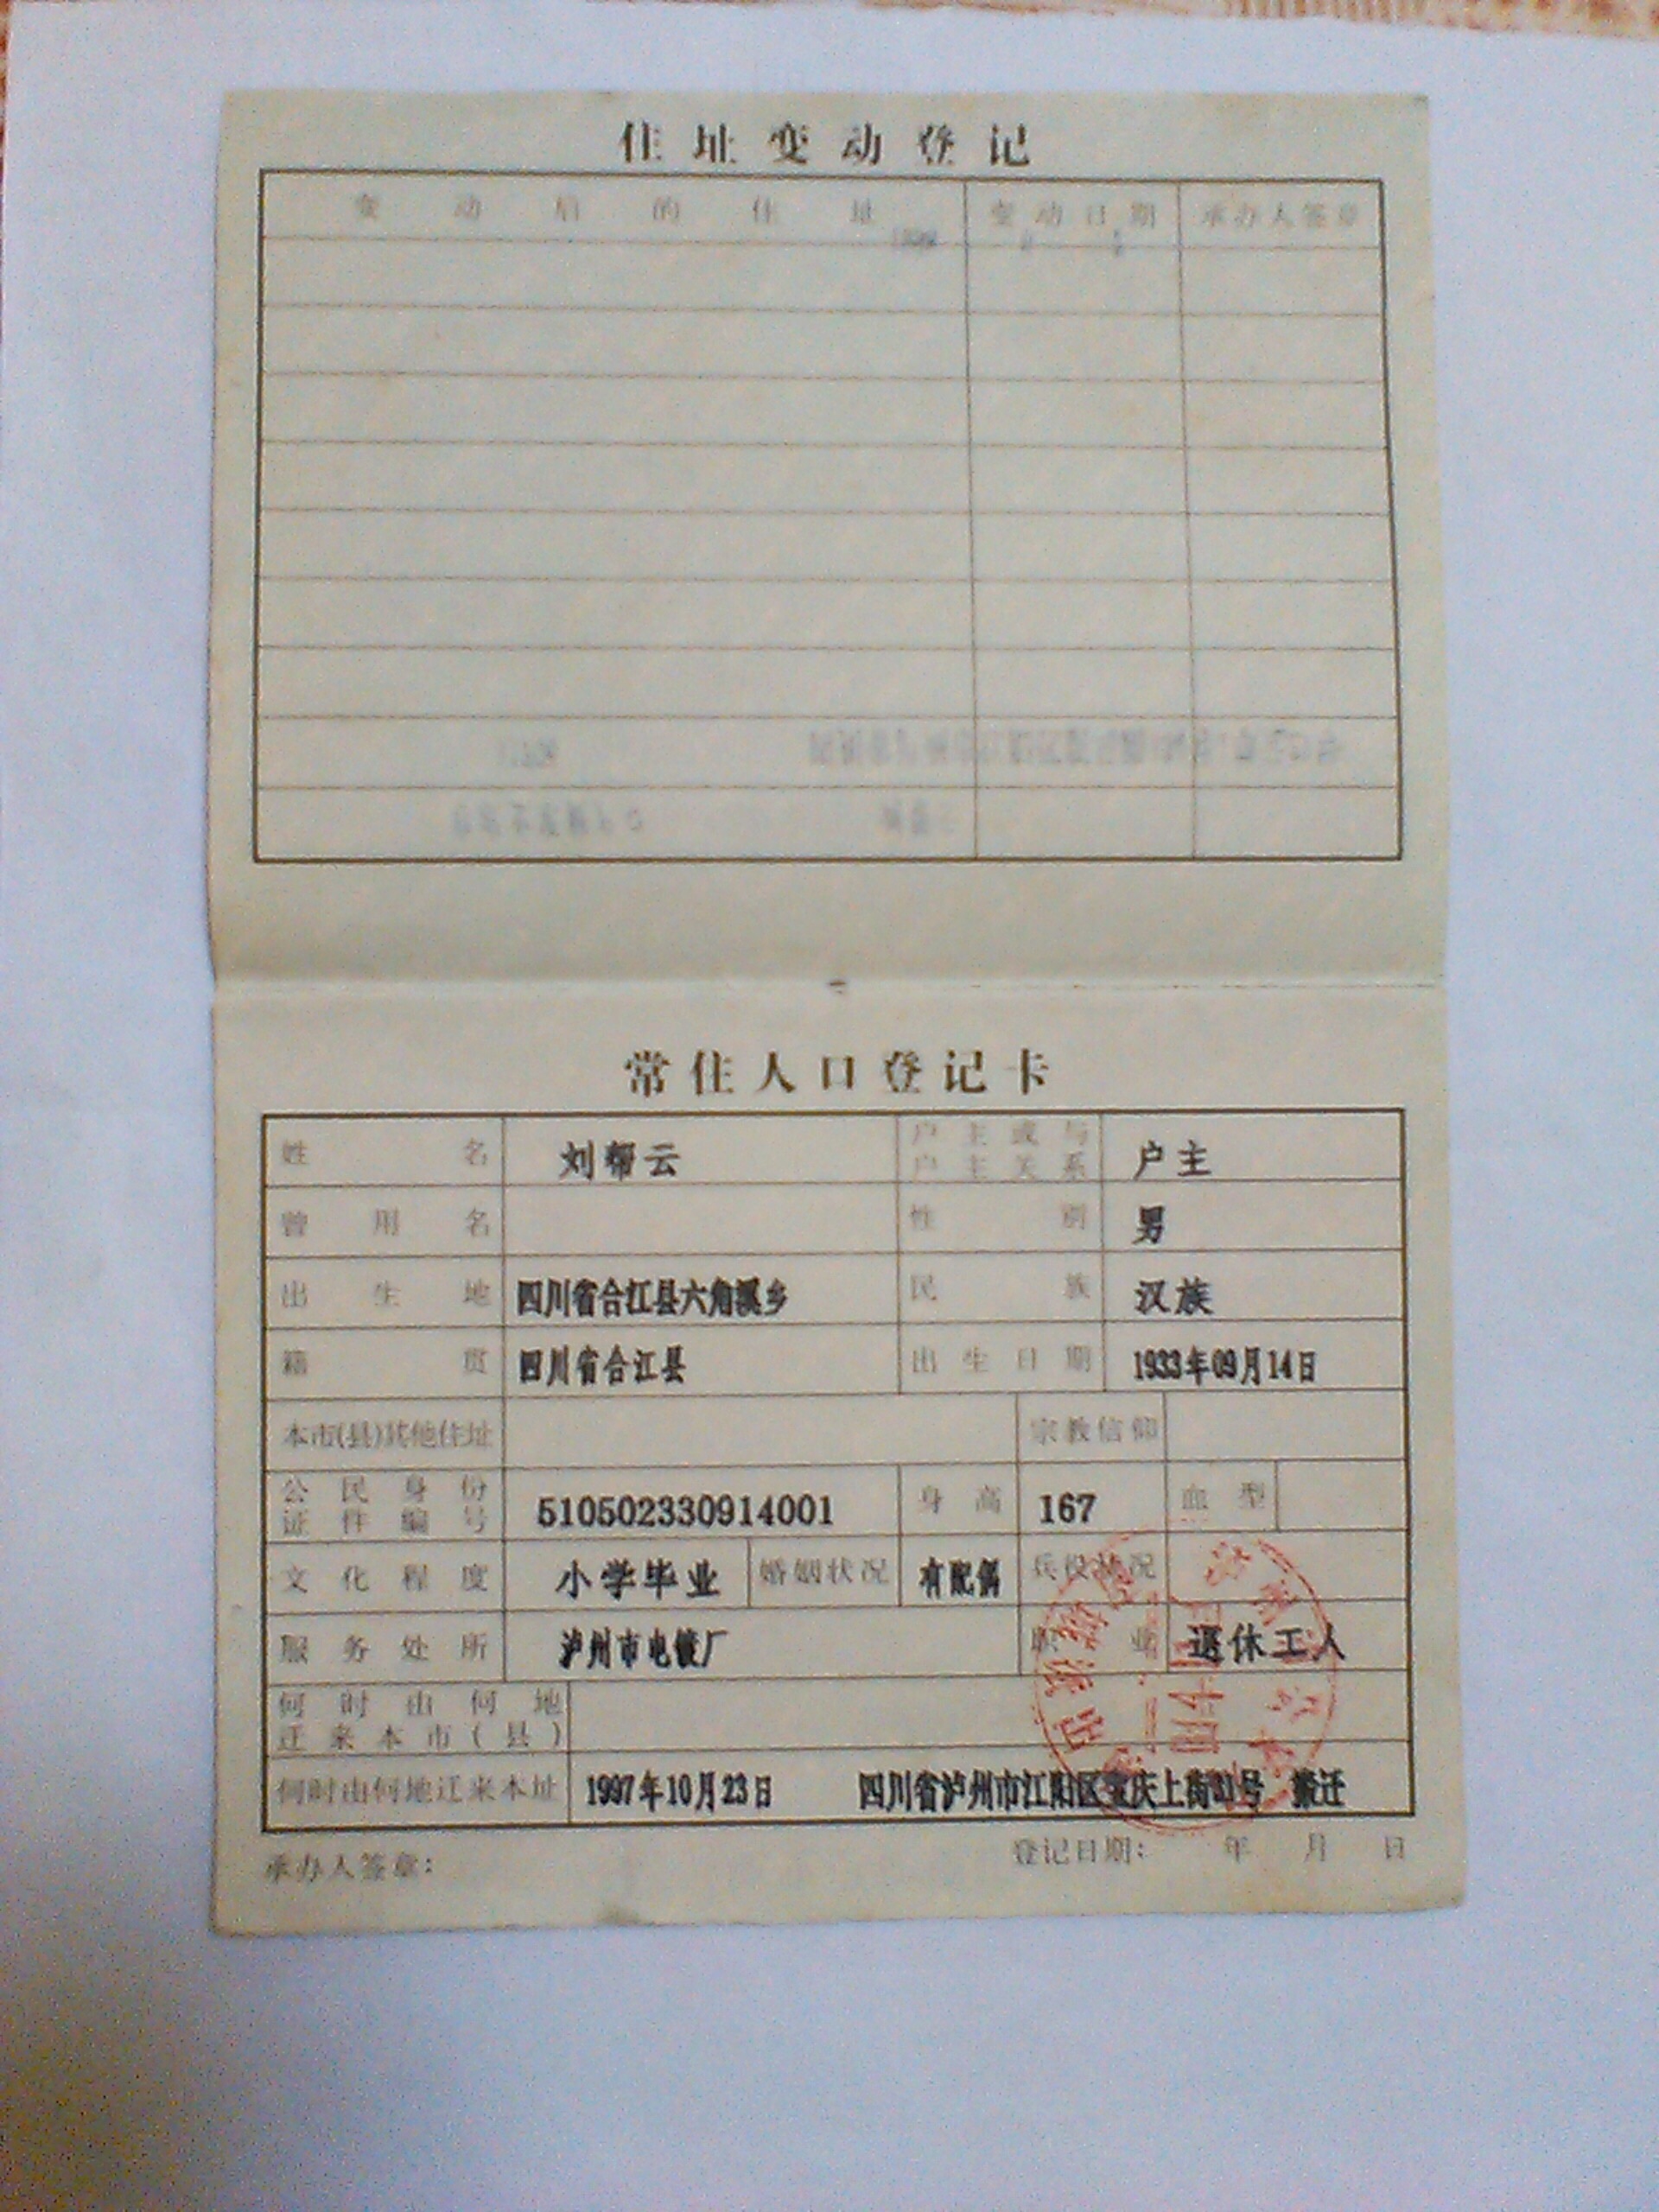 住址变动登记
变动后的住址 变动日期 承办人签章
常住人口登记卡
姓名 刘帮云 户主或与户主关系 户主
曾用名 性别 男
出生地 四川省合江县六角溪乡 民族 汉族
籍贯 四川省合江县 出生日期 1933年09月14日
本市(县)其他住址 宗教信仰
公民身份证件编号 510502330914001 身高 167 血型
文化程度 小学毕业 婚姻状况 有配偶 兵役状况
服务处所 泸州市电镀厂 职业 退休工人
何时由何地迁来本市(县)
何时由何地迁来本址 1997年10月23日 四川省泸州市江阳区 庆上街 号 搬迁
承办人签章： 登记日期： 年 月 日